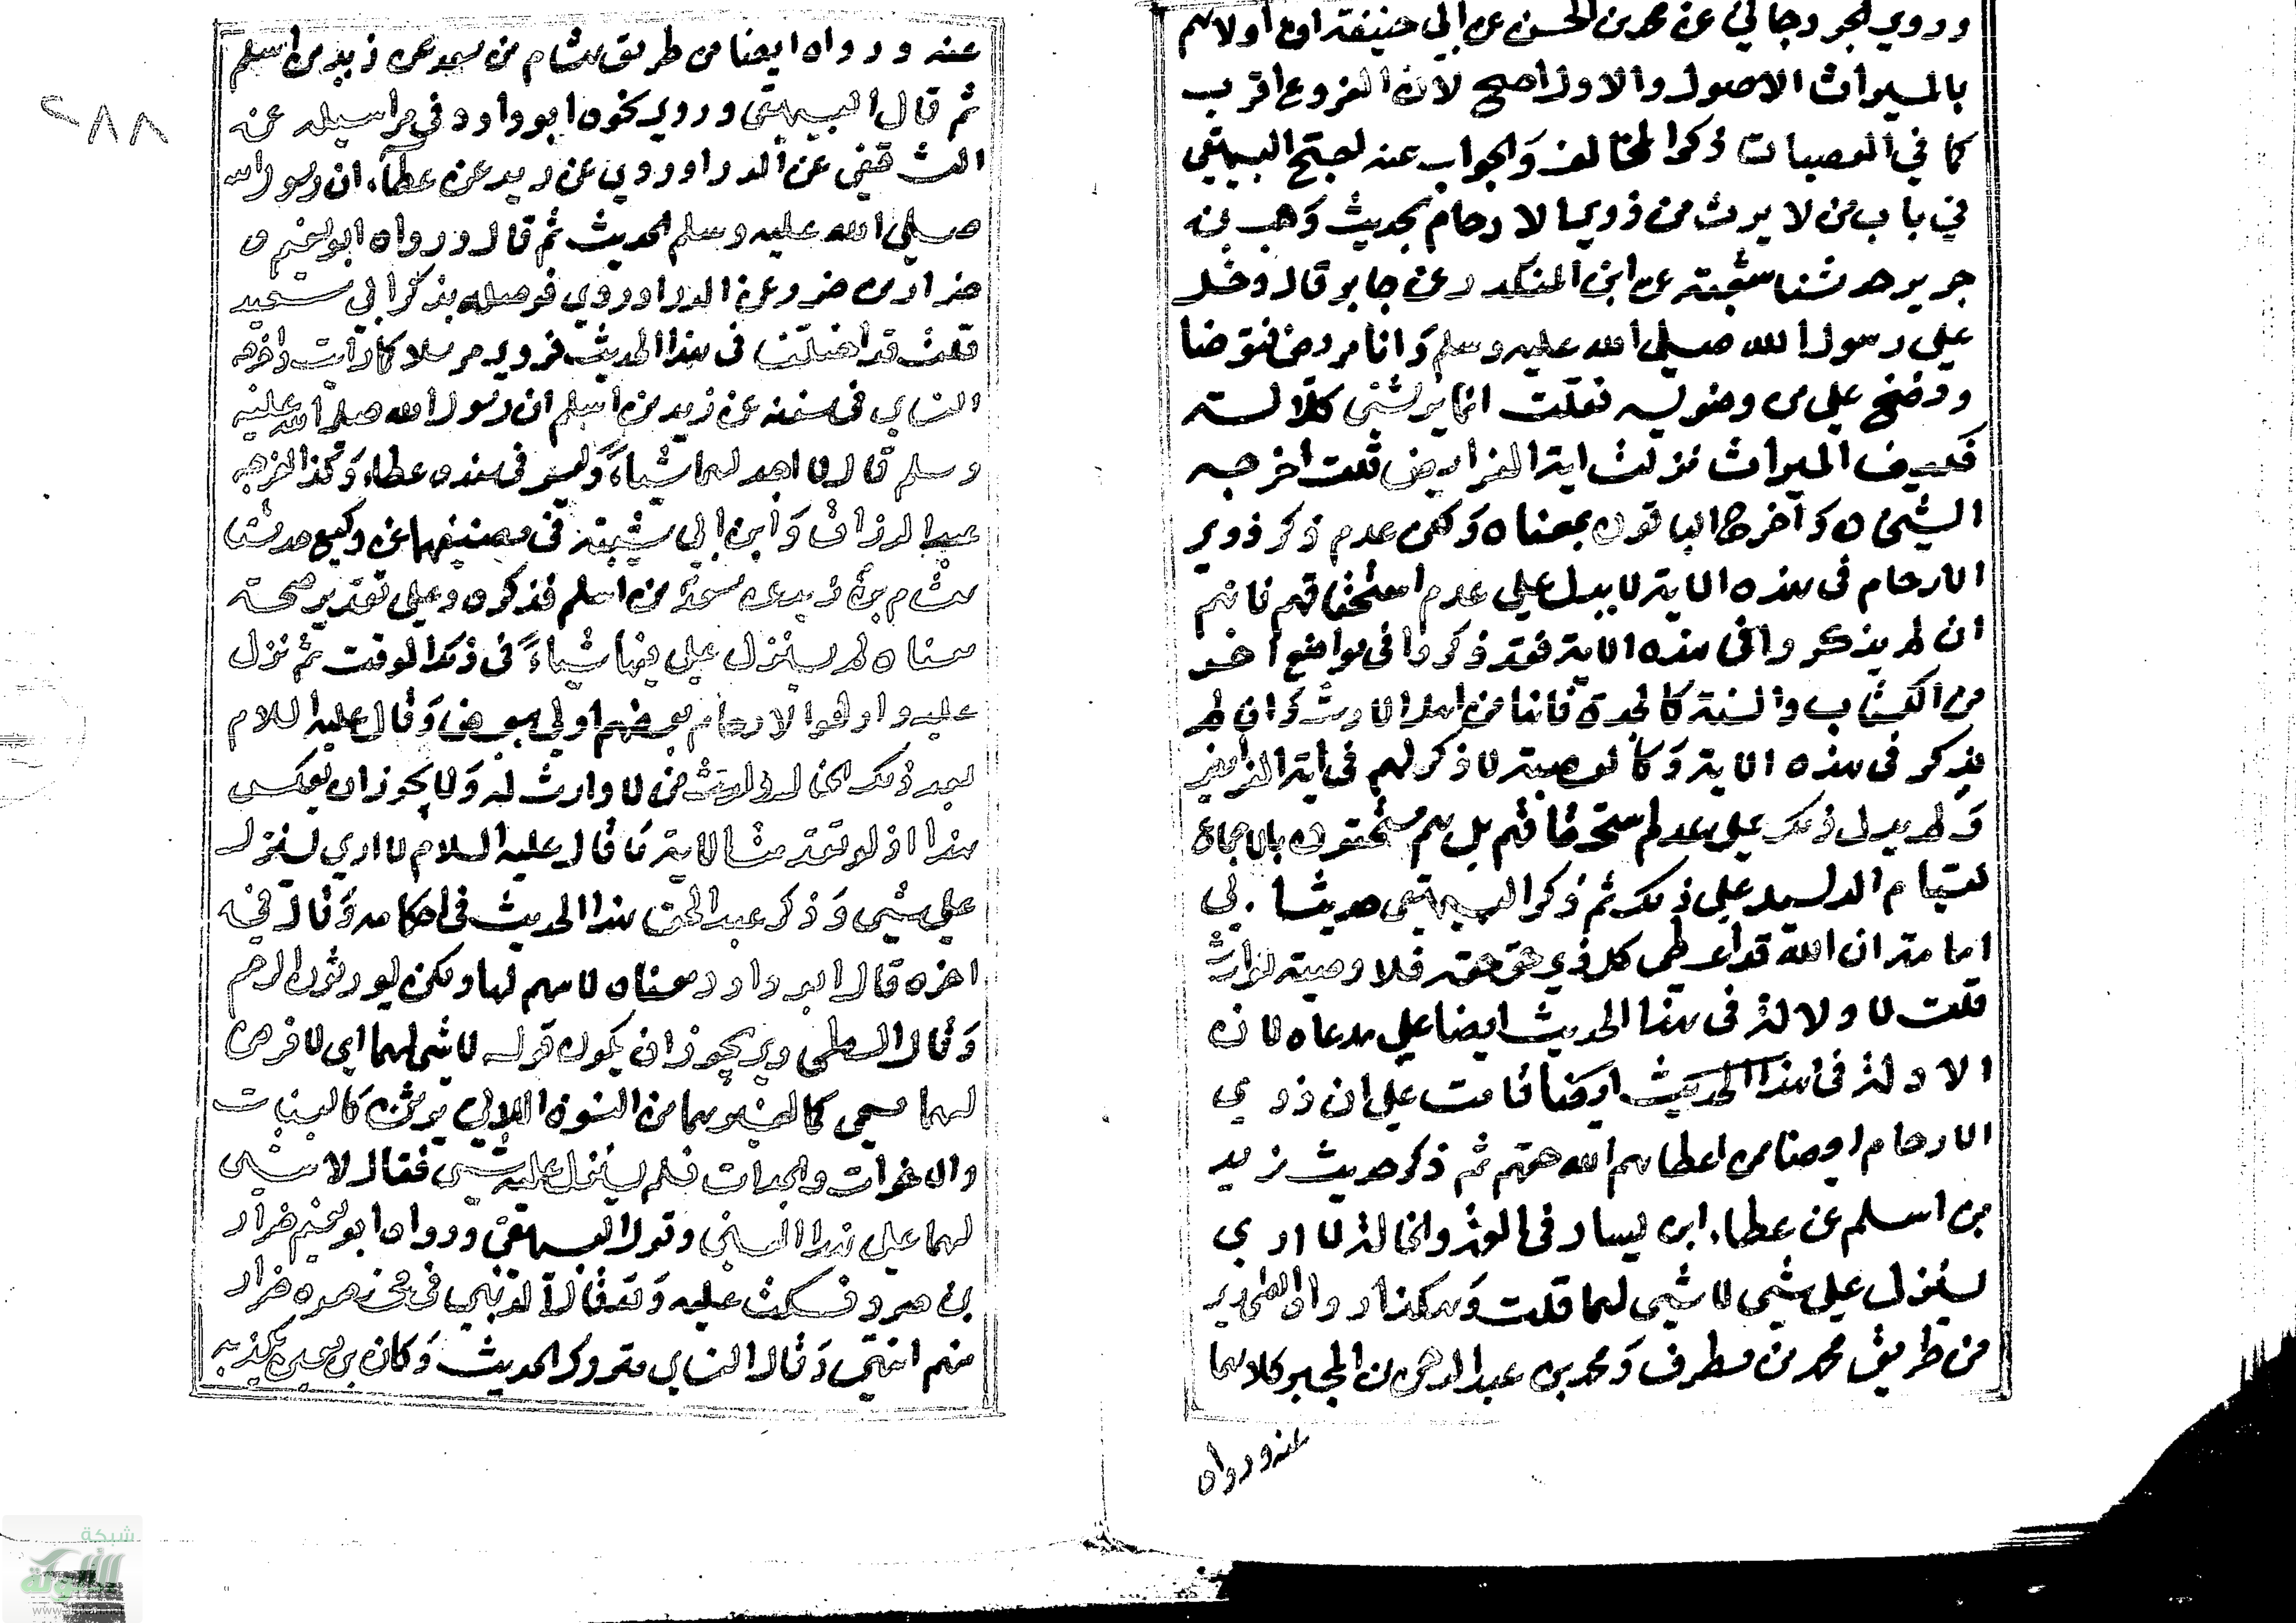 وروي الجرجاني عن محمد بن الحسن عن ابي حنيفة ان اولاهم
بالميراث الاصول والاول اصح لان الفروع اقرب
كما في العصبات ذكر المخالف والجواب عنه احتج البيهقي
في باب من لا يرث من ذوي الارحام بحديث وهب بن
جرير حدثنا شعبة عن ابن المنكدر عن جابر قال دخل
علي رسول الله صلى الله عليه وسلم وانا مريض فتوضا
ونضح علي من وضوئه فقلت انما يرثني كلالة
فكيف الميراث نزلت اية الفرايض قلت اخرجه
الشيخان واخرجه الباقون بمعناه ولكن عدم ذكر ذوي
الارحام في هذه الاية لا يدل علي عدم استحقاقهم فانهم
ان لم يذكروا في هذه الاية فقد ذكروا في مواضع اخر
من الكتاب والسنة كالجدة فانها من اهل الارث وان لم
يذكر في هذه الاية وكالعصبة لا ذكر لهم في اية الفرايض
ولم يدل ذلك علي عدم استحقاقهم بل هم مستحقون بالاجماع
لقيام الدليل علي ذلك ثم ذكر البيهقي حديث ابي
امامة ان الله قد اعطي كل ذي حق حقه فلا وصية لوارث
قلت لا دلالة في هذا الحديث ايضا علي مدعاه لان
الادلة في هذا الحديث ايضا قامت علي ان ذوي
الارحام ايضا من اعطاهم الله حقهم ثم ذكر حديث زيد
بن اسلم عن عطاء ابن يسار في العمة والخالة لا اري
ينزل علي شي لا شي لهما قلت وهكذا رواه الطحاوي
من طريق محمد بن مطرف ومحمد بن عبد الرحمن بن المجبر كلاهما
عنه ورواه
٢٨٨
عنه ورواه ايضا من طريق هشام بن سعد عن زيد بن اسلم
ثم قال البيهقي وروي نحوه ابو داود في مراسيله عن
القعنبي عن الدراوردي عن زيد عن عطاء ان رسول الله
صلى الله عليه وسلم الحديث ثم قال ورواه ابو نعيم
ضرار بن صرد عن الدراوردي فوصله بذكر ابي سعيد
قلت قد اختلف في هذا الحديث فروي مرسلا كما رايت واخرجه
النساي في سننه عن زيد بن اسلم ان رسول الله صلى الله عليه
وسلم قال لا اجد لهما شياء وليس في سنده عطاء وكذا اخرجه
عبد الرزاق وابن ابي شيبة في مصنفيهما عن وكيع حدثنا
هشام بن سعد عن زيد بن اسلم فذكره وعلي تقدير صحته
معناه لم ينزل علي فيهما شياء في ذلك الوقت ثم نزل
عليه واولوا الارحام بعضهم اولي ببعض وقال عليه السلام
بعد ذلك الخال وارث من لا وارث له ولا يجوز ان يعكس
هذا اذ لو تقدمت الاية ما قال عليه السلام لا اري ينزل
علي شي وذكر عبد الحق هذا الحديث في احكامه وقال في
اخره قال ابو داود معناه لا سهم لهما ولكن يورثون للرحم
وقال الطحاوي يجوز ان يكون قوله لا شي لهما اي لا فرض
لهما مسمي كما لغيرهما من النسوة اللاتي يرثن كالبنات
والاخوات والجدات فلم ينزل عليه شي فقال لا شي
لهما علي هذا المعني وقول البيهقي ورواه ابو نعيم ضرار
بن صرد فسكت عليه وقد قال الذهبي في مختصره ضرار
متهم انتهي وقال النساي متروك الحديث وكان بن معين يكذبه
شبكة
الألوكة